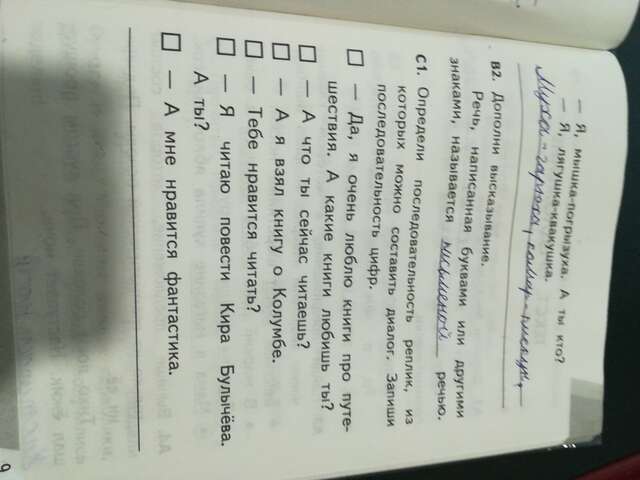 — Я, мышка-погрызуха. А ты кто?
— Я, лягушка-квакушка.
Муха - горюха, комар - пискун,
В2. Дополни высказывание.
Речь, написанная буквами или другими
знаками, называется письменой речью.
С1. Определи последовательность реплик, из
которых можно составить диалог. Запиши
последовательность цифр.
— Да, я очень люблю книги про путе-
шествия. А какие книги любишь ты?
— А что ты сейчас читаешь?
— А я взял книгу о Колумбе.
— Тебе нравится читать?
— Я читаю повести Кира Булычёва.
А ты?
— А мне нравится фантастика.
9